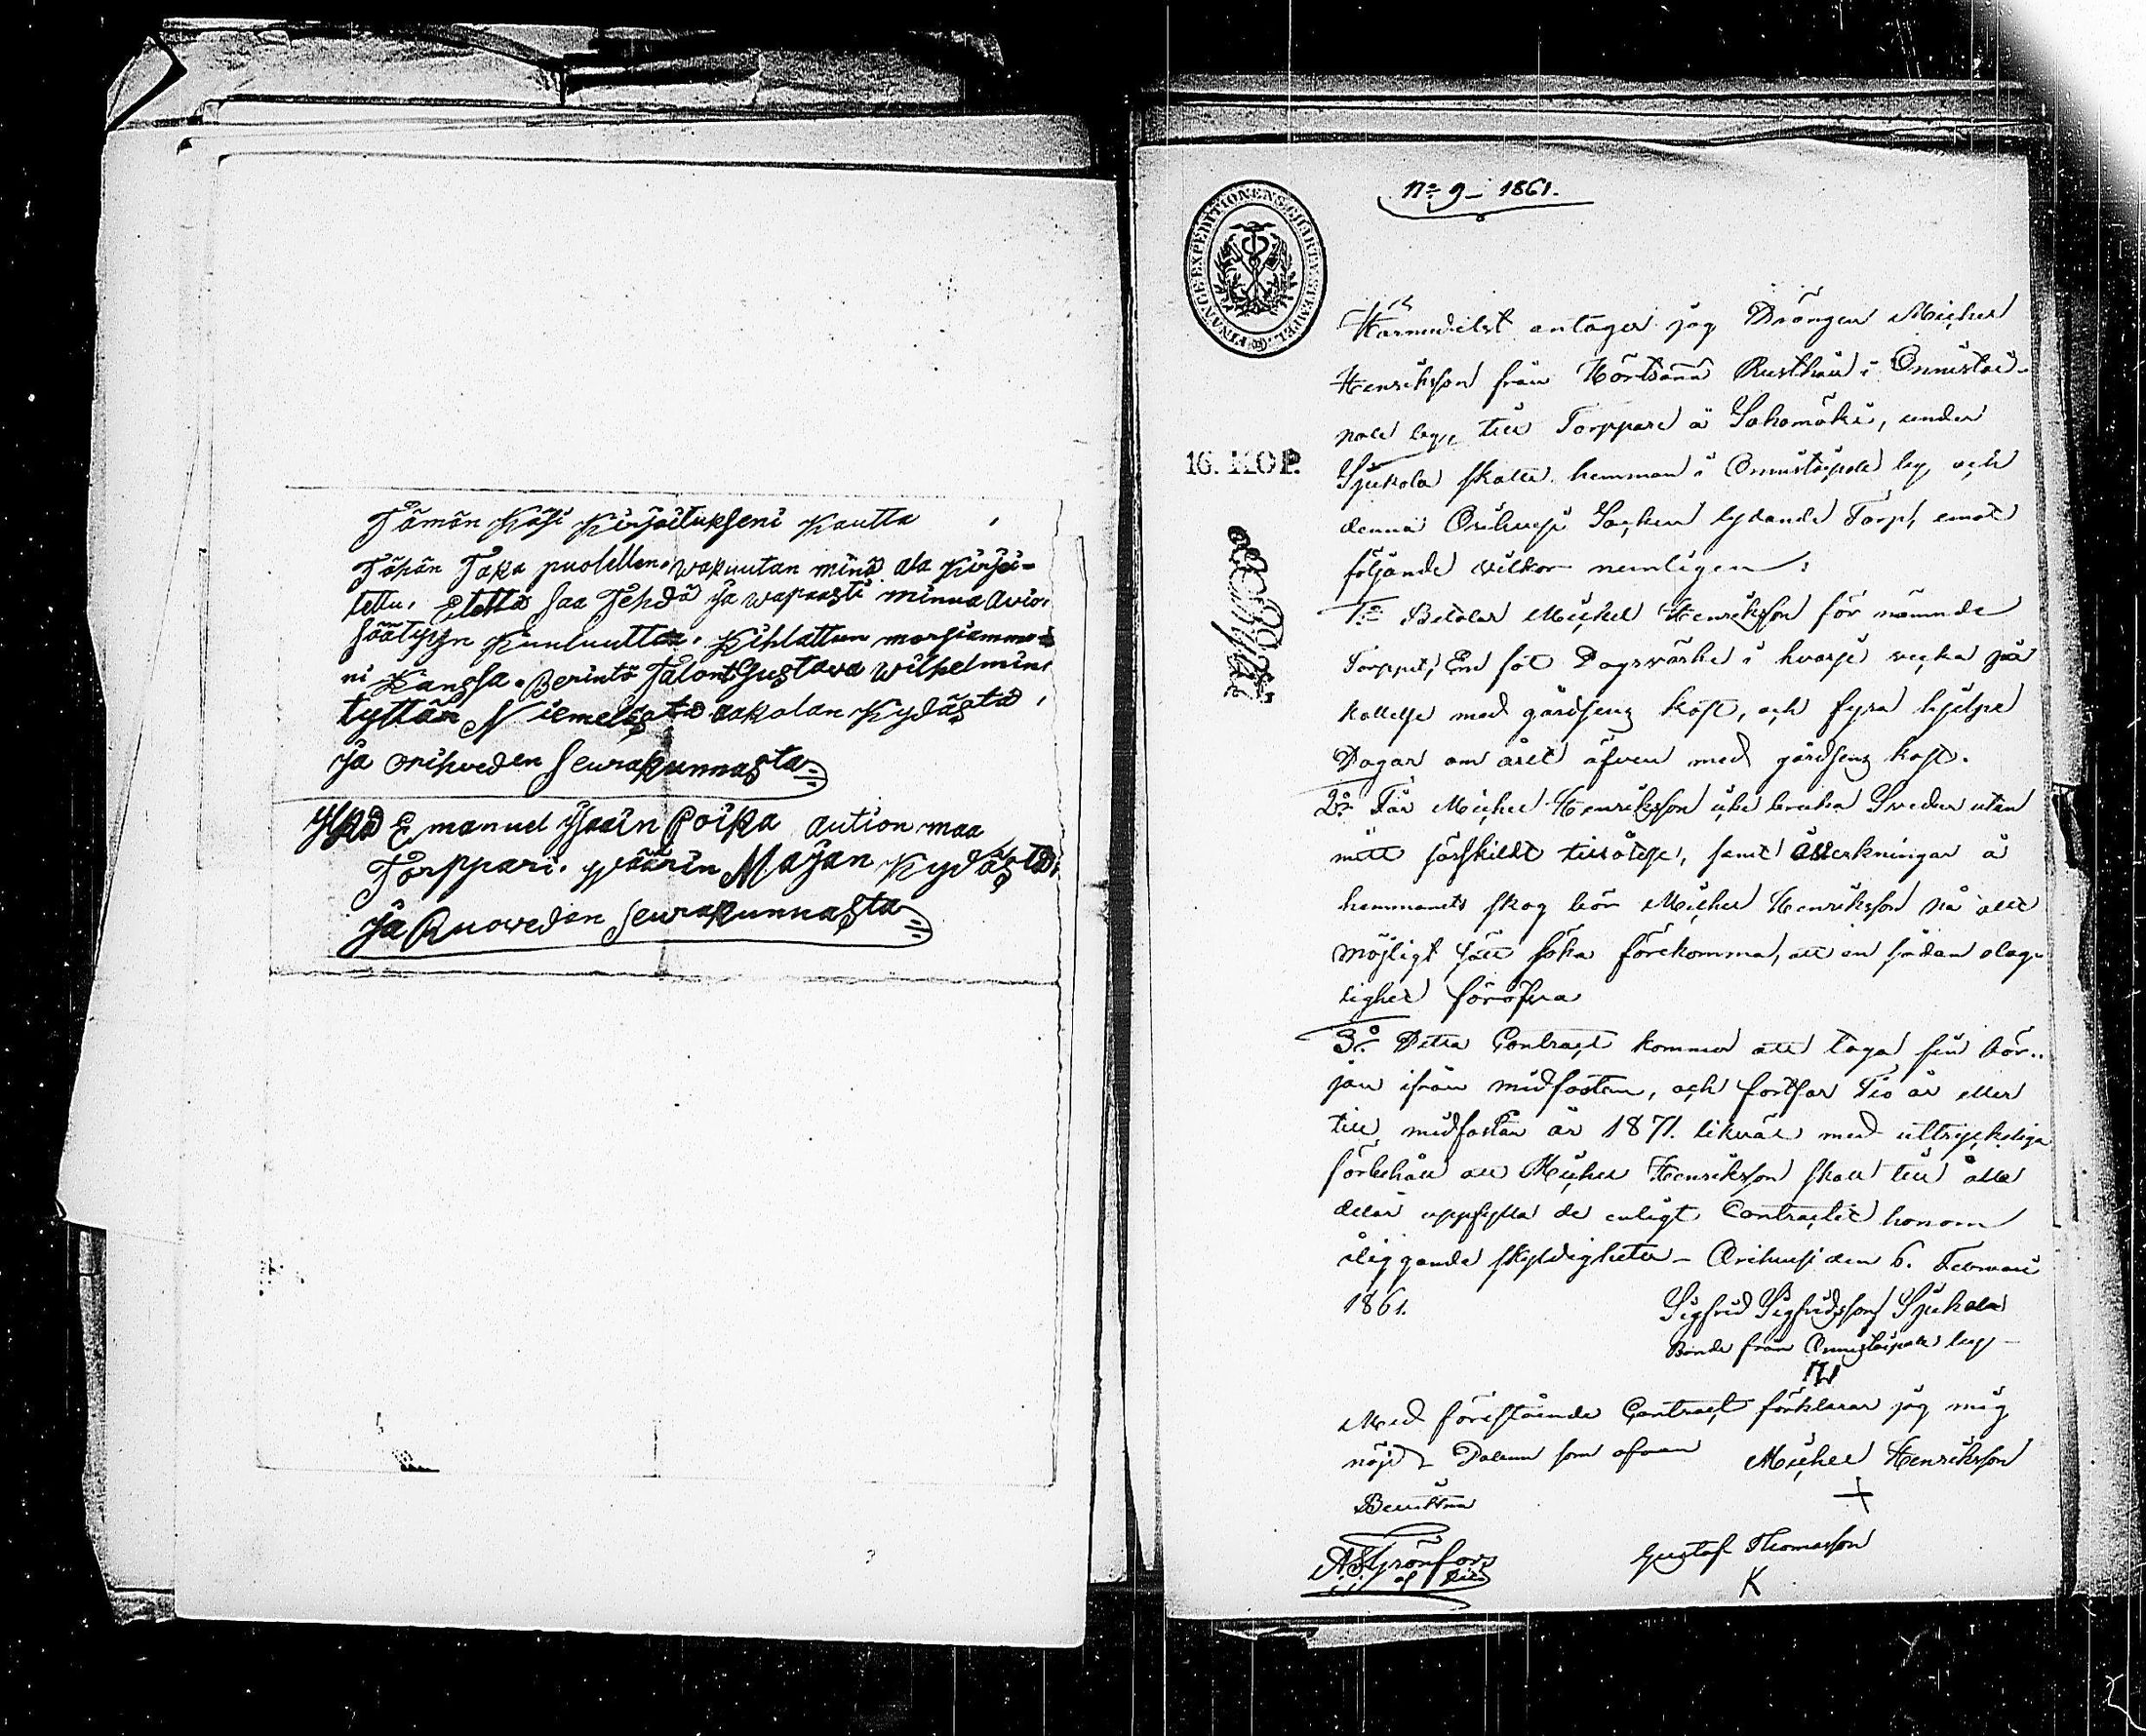 Tämän Käsi Kirjoitukseni Kautta
Tähän Taka puolellen. wakuutan minä ala Kirjoi-
tettu. Etettä saa Tehdä ja wapaasti minua Avio.
säätyyn Kuuluuttaa. Kihlattun morsiamme-
ni Kanssa. Berintö Talont Gustava Wilhelmina
tyttän Niemelästä aakalan Kydästä,
ja orihveden Seurakunnasta
Yskä Emanuel Isain Poika aution maa
Torppari. Wäärin Majan Kydästä,
ja Ruoveden Seurakunnasta
No 9 - 1861.
FINANCE EXPEDITIONENS CHARTÆ STEMPEL
16. KOP.
Härmedelst antager jag Drängen Michel
Henriksson från Körtsänä Rusthåll i Onnistai-
pale by, till Torppare å Sahamäki, under
Sjukola skatte hemman i Onnistaipale by, och
denna Orihvesi Socken lydande Torp, emot
följande vilkor nemligen:
1o Betalar Michel Henriksson för nämnde
Torppet, En föt Dagsvärke i hvarje vecka på
kallelse med gårdsens kost, och fyra hjelpe
Dagar om året äfven med gårdsens kost.
2o Får Michel Henriksson icke bruka Svedier utan
mitt särskildt tillåtelse, samt åverkningar å
hemmanets skog bör Michel Henriksson på allt
möjligt sätt söka förekomma, att en sådan olag-
lighet föröfva
3o Detta Contract kommer att taga sin bör-
jan ifrån midfastan, och fortfar Tio år eller
till midfastan år 1871. likväl med uttryckeliga
förbehåll att Michel Henriksson skall till alla
delar uppfylla de enligt Contractet honom
åliggande skyldigheter - Orihvesi den 6. Februari
1861. Sigfrid Sigfridsson Sjukola
Bonde från Onnistaipale by -
Med förestående Contract förklarar jag mig
nöjd Datum som ofvan Michel Henriksson
Bevittna
A. F. Grönfors Gustaf Thomasson
K